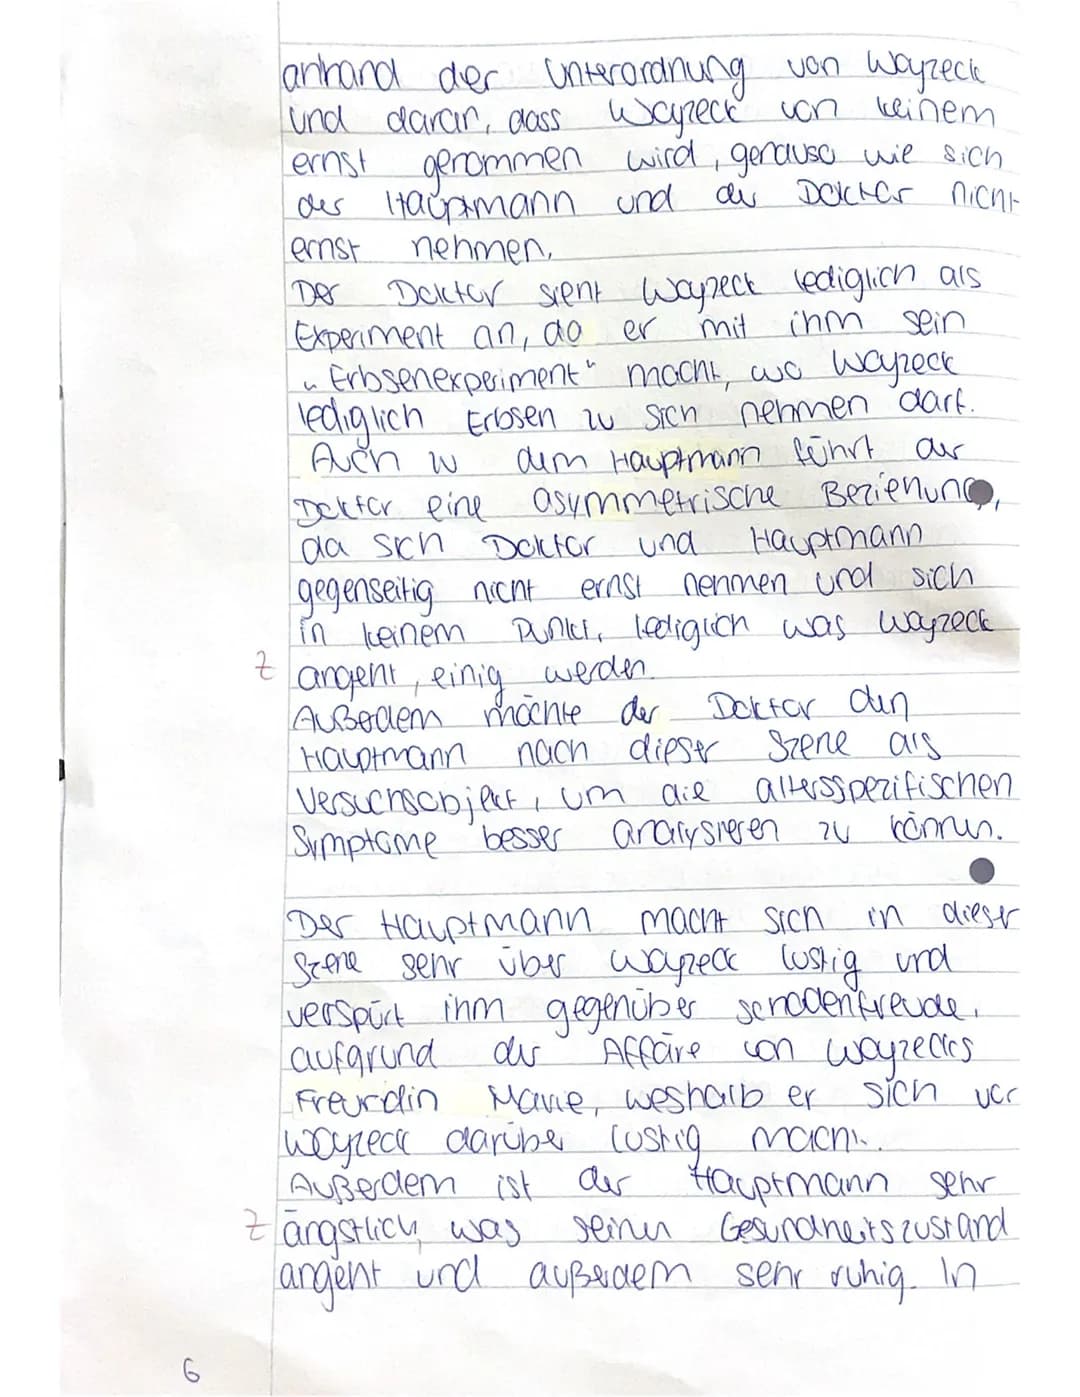 anhand der Unterordnung von Woyzeck
und daran, dass Woyzeck von keinem
ernst genommen wird, genauso wie sich
der Hauptmann und der Doktor nicht
ernst nehmen.
Der Doktor sieht Woyzeck lediglich als
Experiment an, da er mit ihm sein
„Erbsenexperiment“ macht, wo Woyzeck
lediglich Erbsen zu sich nehmen darf.
Auch zu dem Hauptmann führt der
Doktor eine asymmetrische Beziehung,
da sich Doktor und Hauptmann
gegenseitig nicht ernst nehmen und sich
in keinem Punkt, lediglich was Woyzeck
Z angeht, einig werden.
Außerdem möchte der Doktor den
Hauptmann nach dieser Szene als
Versuchsobjekt, um die altersspezifischen
Symptome besser analysieren zu können.
Der Hauptmann macht sich in dieser
Szene sehr über Woyzeck lustig und
verspürt ihm gegenüber schadenfreude,
aufgrund der Affäre von Woyzecks
Freundin Marie, weshalb er sich vor
Woyzeck darüber lustig macht.
Außerdem ist der Hauptmann sehr
Z ängstlich, was seinen Gesundheitszustand
angeht und außerdem sehr ruhig. In
6